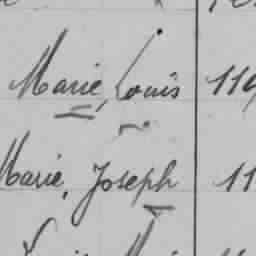 Marie, Louis 119
Marie, Joseph 11